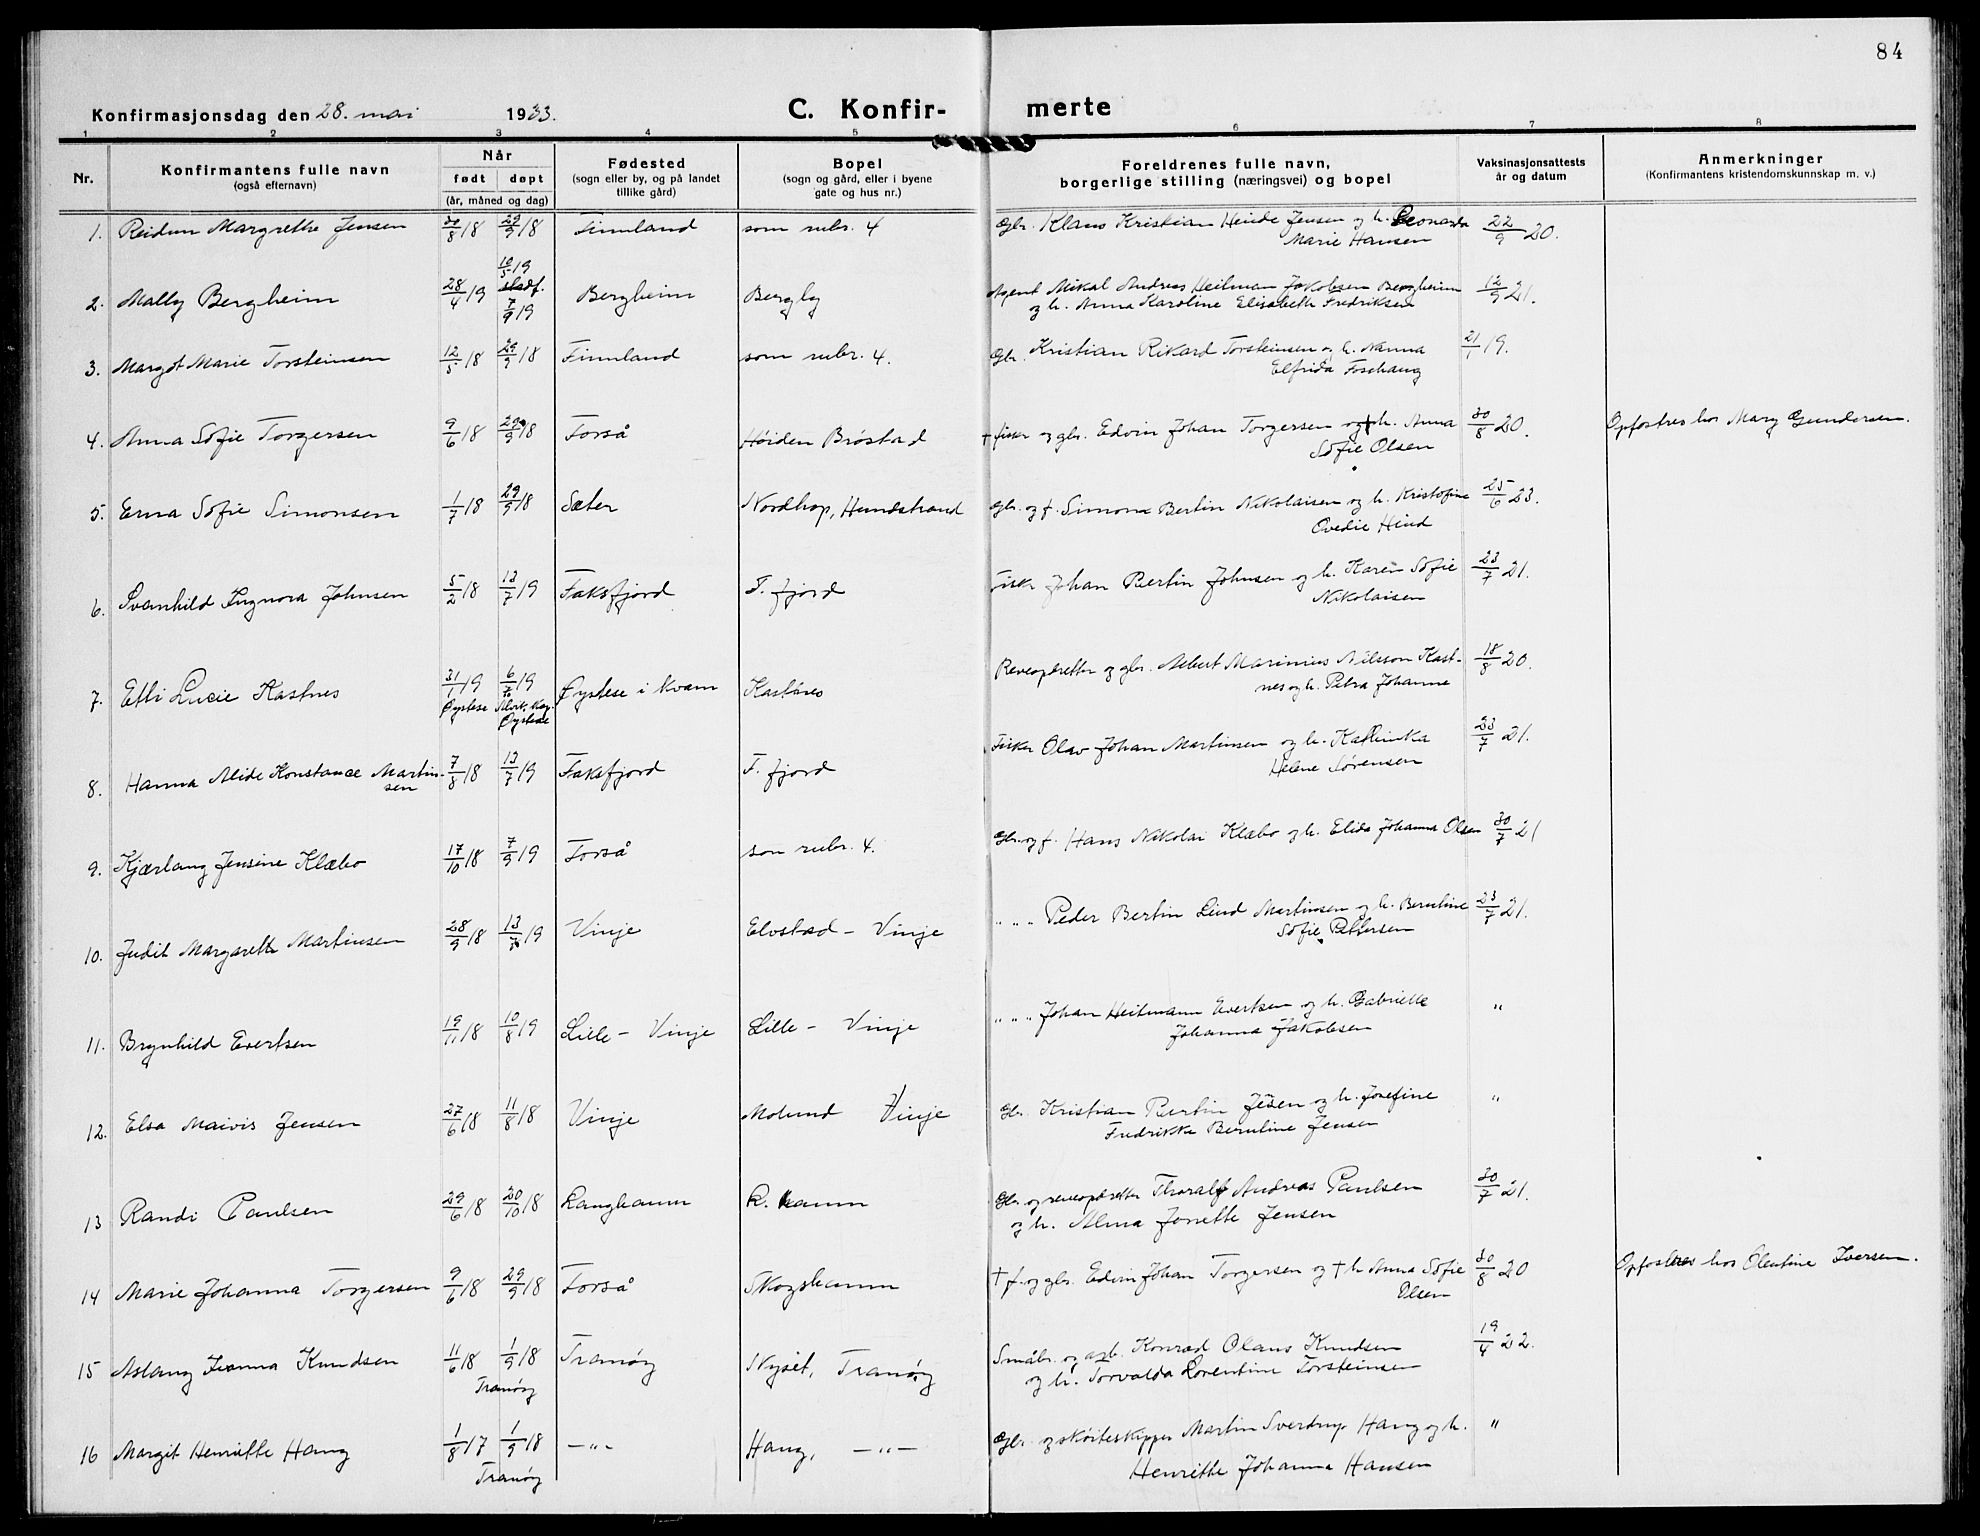 84
Konfirmasjonsdag den 28. mai 1933.
C. Konfir- merte
1 2 3 4 5 6 7 8
Nr. Konfirmantens fulle navn (også efternavn) Når født døpt (år, måned og dag) Fødested (sogn eller by, og på landet tillike gård) Bopel (sogn og gård, eller i byene gate og hus nr.) Foreldrenes fulle navn, borgerlige stilling (næringsvei) og bopel Vaksinasjonsattests år og datum Anmerkninger (Konfirmantens kristendomskunnskap m. v.)
1. Reidun Margrethe Jensen 30/8 18 29/9 18 Finnland som rubr. 4 Gbr. Klaus Kristian Heide Jensen og h. Leonarda 22/9 20.
Marie Hansen
10/5 19
2. Mally Bergheim 28/4 19 stadf. Bergheim Bergly Agent Mikal Andreas Heitman Jakobsen Bergheim 12/9 21.
7/9 19 og h. Anna Karoline Elisabeth Fredriksen
3. Margot Marie Torsteinsen 12/5 18 29/9 18 Finnland som rubr. 4. Gbr. Kristian Rikard Torsteinsen og h. Nanna 21/1 19.
Elfrida Foshaug
4. Anna Sofie Torgersen 9/6 18 29/9 18 Forså Høiden Brøstad † fisker og gbr. Edvin Johan Torgersen og † h. Anna 30/8 20. Opfostres hos Mary Gundersen.
Sofie Olsen
5. Erna Sofie Simonsen 1/7 18 29/9 18 Sæter Nordhop, Hundstrand Gbr. og f. Simon Bertin Nikolaisen og h. Kristofine 25/6 23.
Ovedie Hind
6. Svanhild Ingnora Johnsen 5/2 18 13/7 19 Faksfjord F. fjord Fisker Johan Bertin Johnsen og h. Karen Sofie 23/7 21.
Nikolaisen
7. Etli Lucie Kastnes 31/1 19 6/7 19 Øystese i Kvam Kastnes Reveopdretter og gbr. Albert Marinius Nilsson Kast- 18/8 20.
Øystese Øystese nes og h. Petra Johanne
8. Hanna Alide Konstance Martin- 7/8 18 13/7 19 Faksfjord F. fjord Fisker Olav Johan Martinsen og h. Kathinka 23/7 21.
sen Helene Sørensen
9. Kjærlaug Jensine Klæbo 17/10 18 7/9 19 Forså som rubr. 4. Gbr. og f. Hans Nikolai Klæbo og h. Elida Johanna Olsen 30/7 21
10. Judit Margareth Martinsen 28/9 18 13/7 19 Vinje Elvstad - Vinje " " " Peder Bertin Lind Martinsen og h. Berntine 23/7 21.
Sofie Pettersen
11. Brynhild Evertsen 19/11 18 10/8 19 Lille - Vinje Lille - Vinje " " " Johan Heitmann Evertsen og h. Gabrielle "
Johanna Jakobsen
12. Elsa Maivis Jensen 27/6 18 11/8 18 Vinje Molund Vinje Gbr. Kristian Bertin Jensen og h. Josefine "
Fredrikke Berntine Jensen
13 Randi Paulsen 29/6 18 20/10 18 Langhamn L. hamn Gbr. og reveopdretter Thoralf Andreas Paulsen 30/7 21.
og h. Alma Jonette Jensen
14 Marie Johanna Torgersen 9/6 18 29/9 18 Forså Skogshamn † f. og gbr. Edvin Johan Torgersen og † h Anna Sofie 30/8 20 Opfostres hos Olentine Iversen.
Olsen
15 Aslaug Ivanna Knudsen 11/6 18 1/9 18 Tranøy Nyset, Tranøy Småbr. og arb. Konrad Olaus Knudsen 19/4 22.
Tranøy og h. Torvalda Lorentine Torsteinsen
16 Margit Henriette Haug 1/8 17 1/9 18 -"- Haug, -"- Gbr. og skøiteskipper Martin Sverdrup Haug og h. "
Tranøy Henriette Johanna Hansen